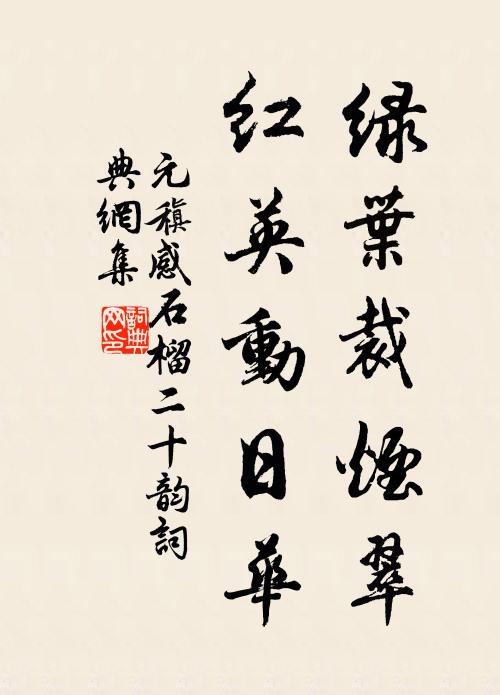 绿葉裁煙翠
红英動日華
元稹感石榴二十韵詞
典網集
詞典网印